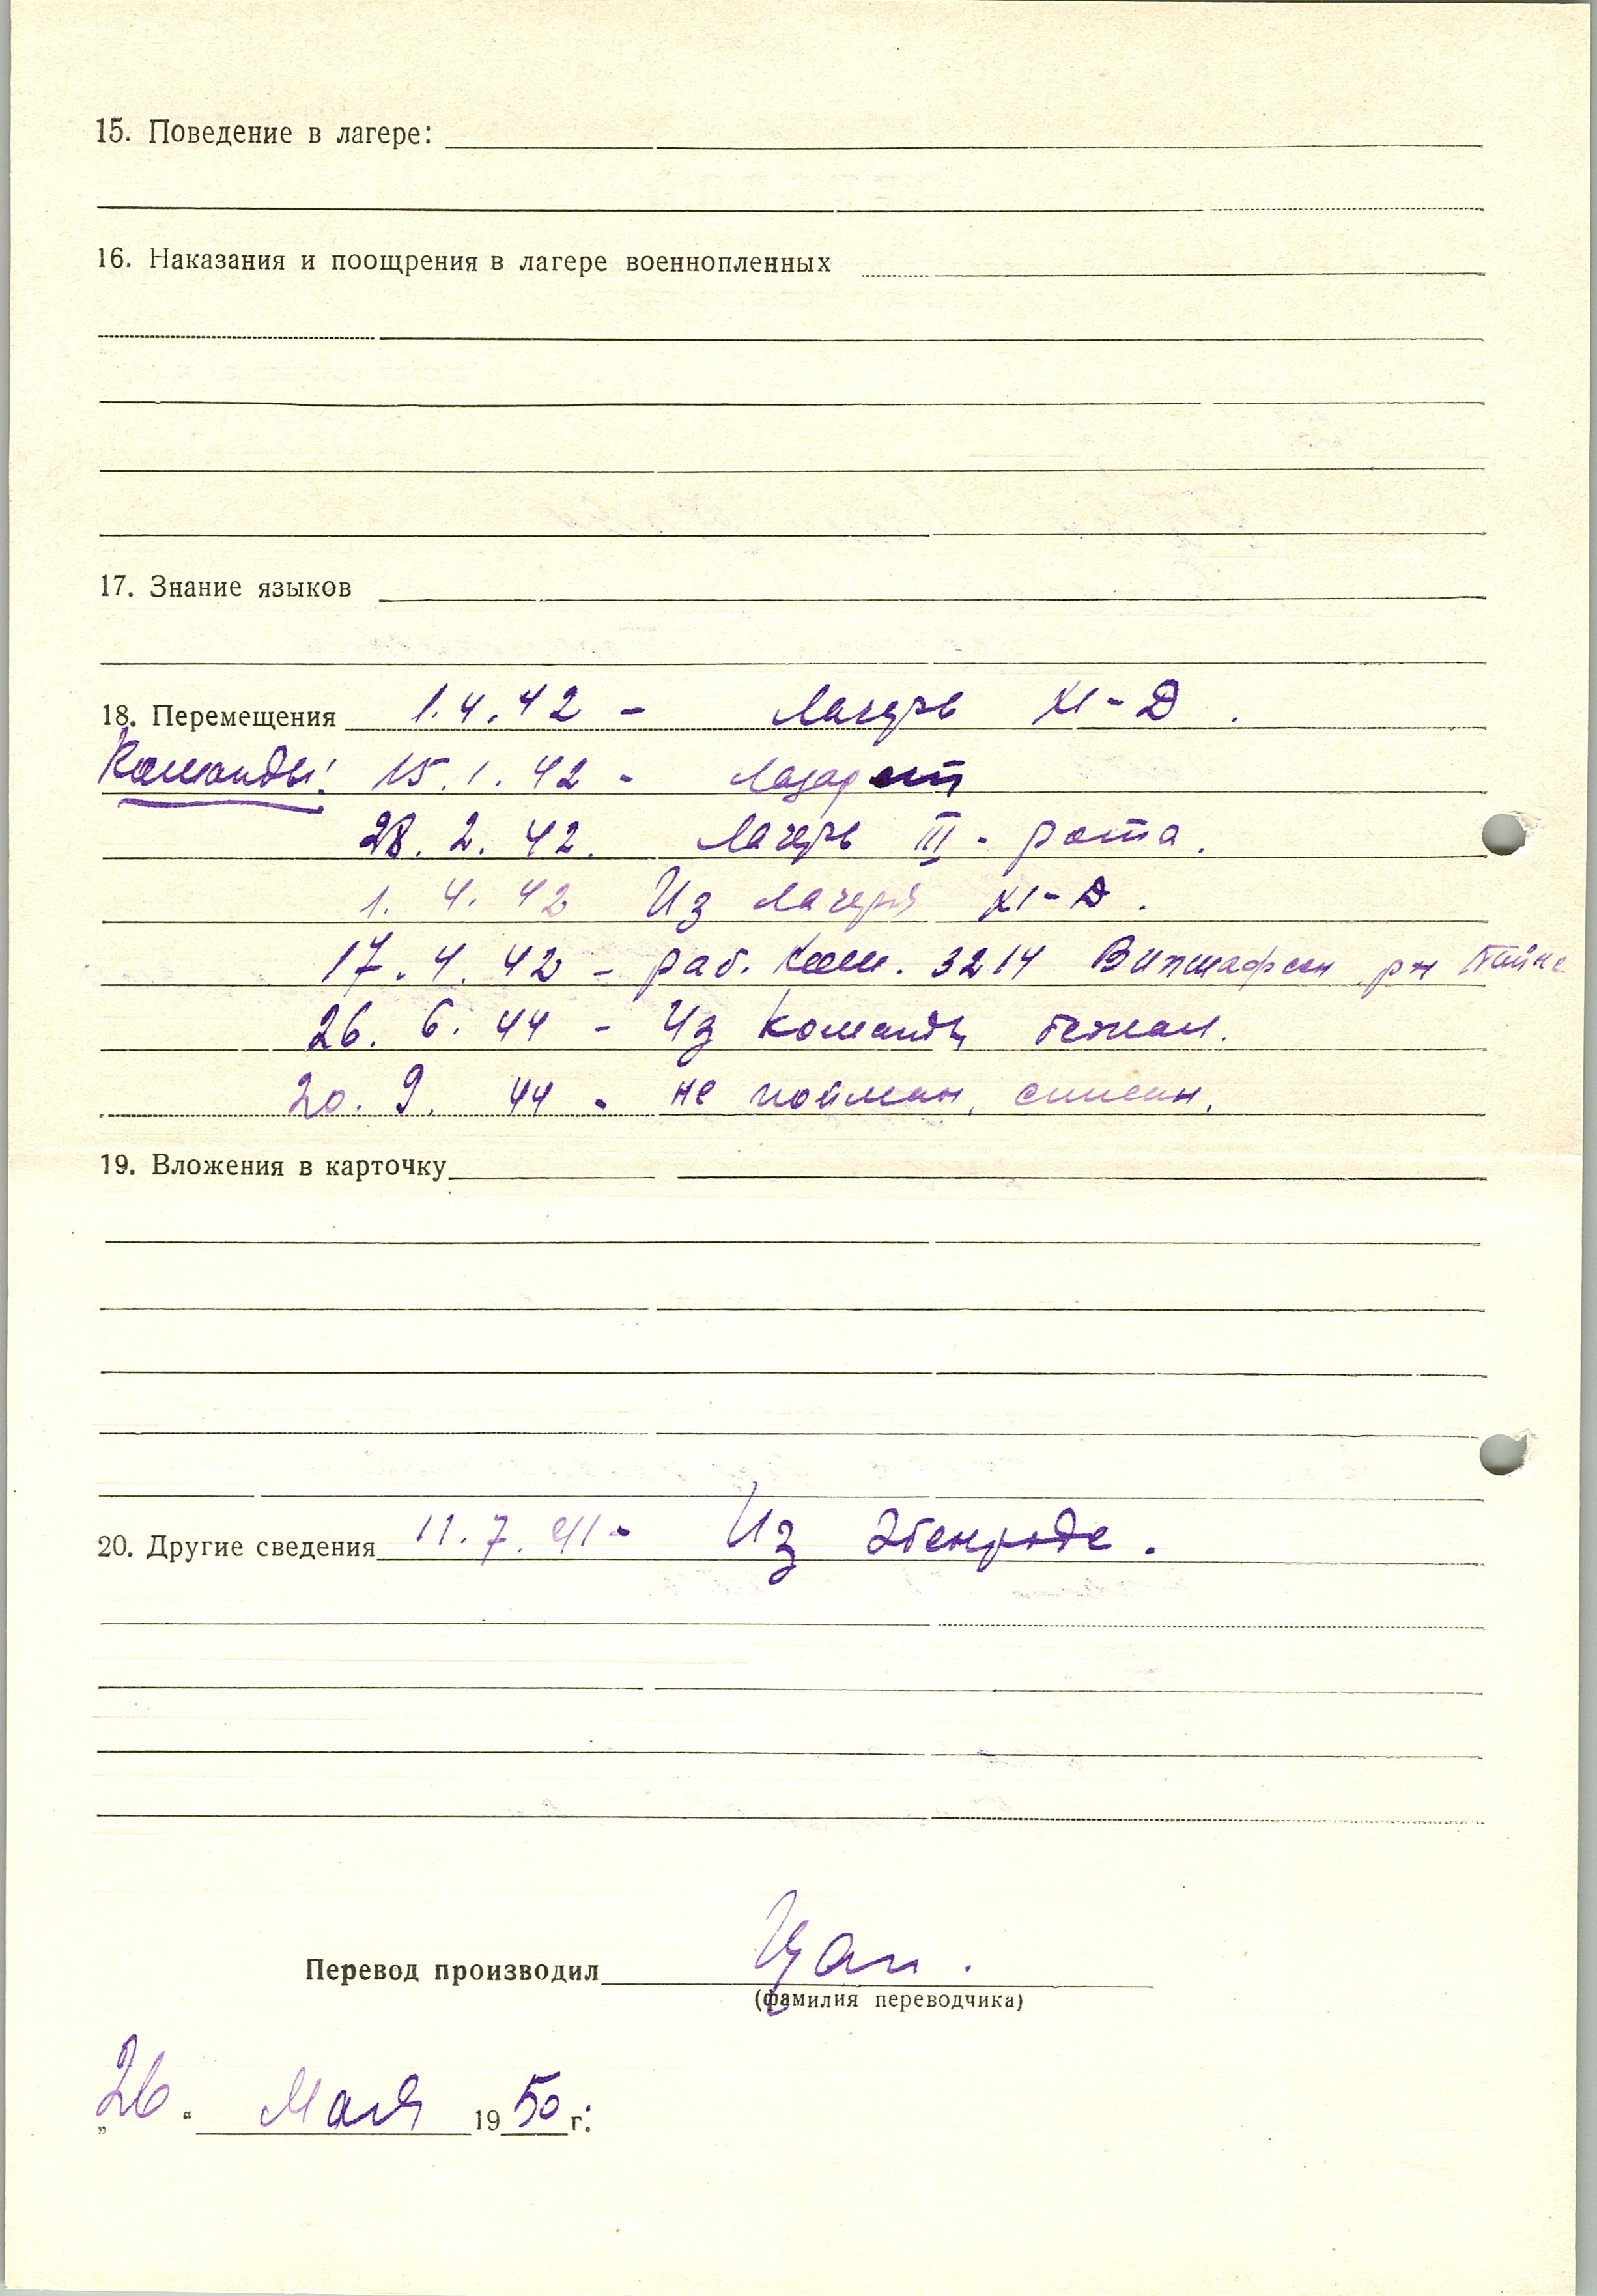 15. Поведение в лагере:
16. Наказания и поощрения в лагере военнопленных
17. Знание языков
18. Перемещения 1.4.42 - Лагерь XI-D.
Команды: 15.1.42 - Лазарет
28.2.42. Лагерь III - рота.
1.4.42 Из лагеря XI-D.
17.4.42 - раб. ком. 3214 рн Пайне
26.6.44 - Из команды бежал.
20.9.44 - не пойман, списан.
19. Вложения в карточку
20. Другие сведения 11.7.41 - Из Эбенроде.
Перевод производил Цап.
(фамилия переводчика)
„26“ Мая 1950 г.